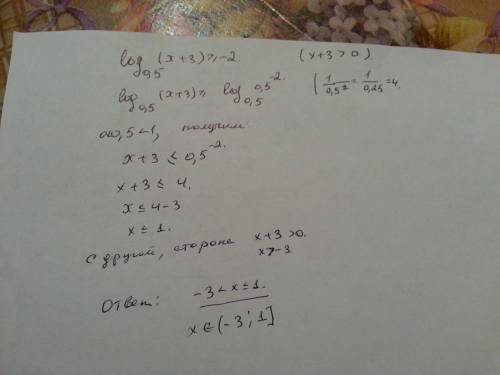 log₀,₅ (x+3) ≥ -2. (x+3 > 0).
log₀,₅ (x+3) ≥ log₀,₅ 0,5⁻². | 1/0,5² = 1/0,25 = 4.
0<0,5<1, получим:
x+3 ≤ 0,5⁻².
x+3 ≤ 4.
x ≤ 4-3
x ≤ 1.
с другой, стороне x+3 >0.
x>-3
Ответ: -3 < x ≤ 1.
x ∈ (-3; 1]